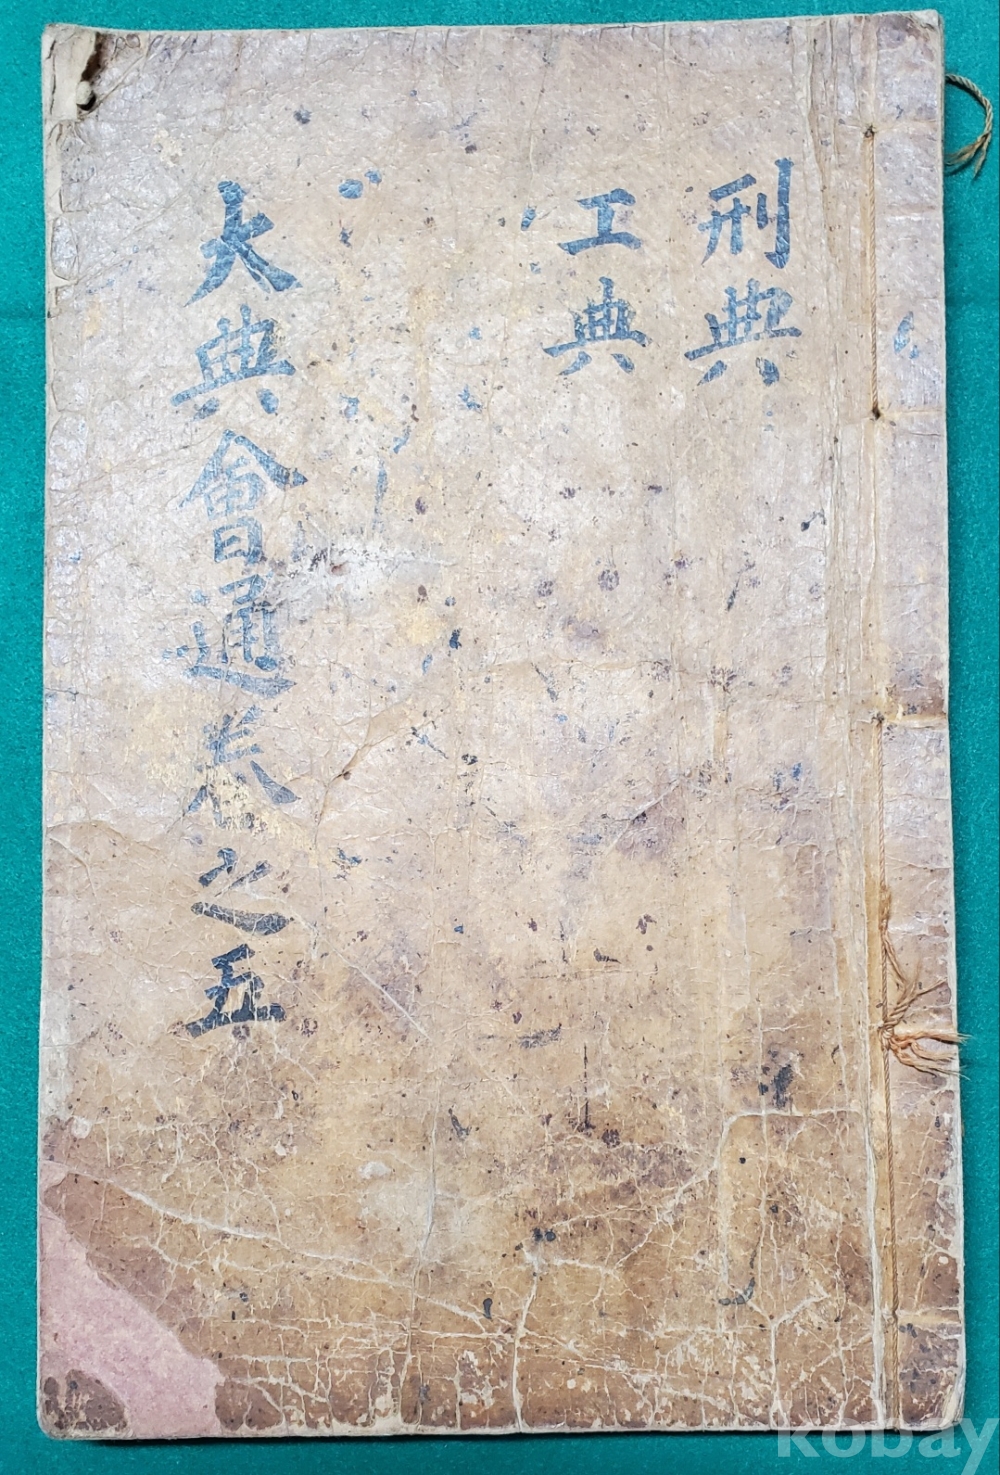 刑典
工典
大典會通卷之五
kobay